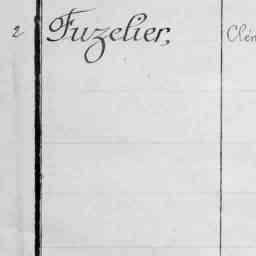 2 Fuzelier, Clém